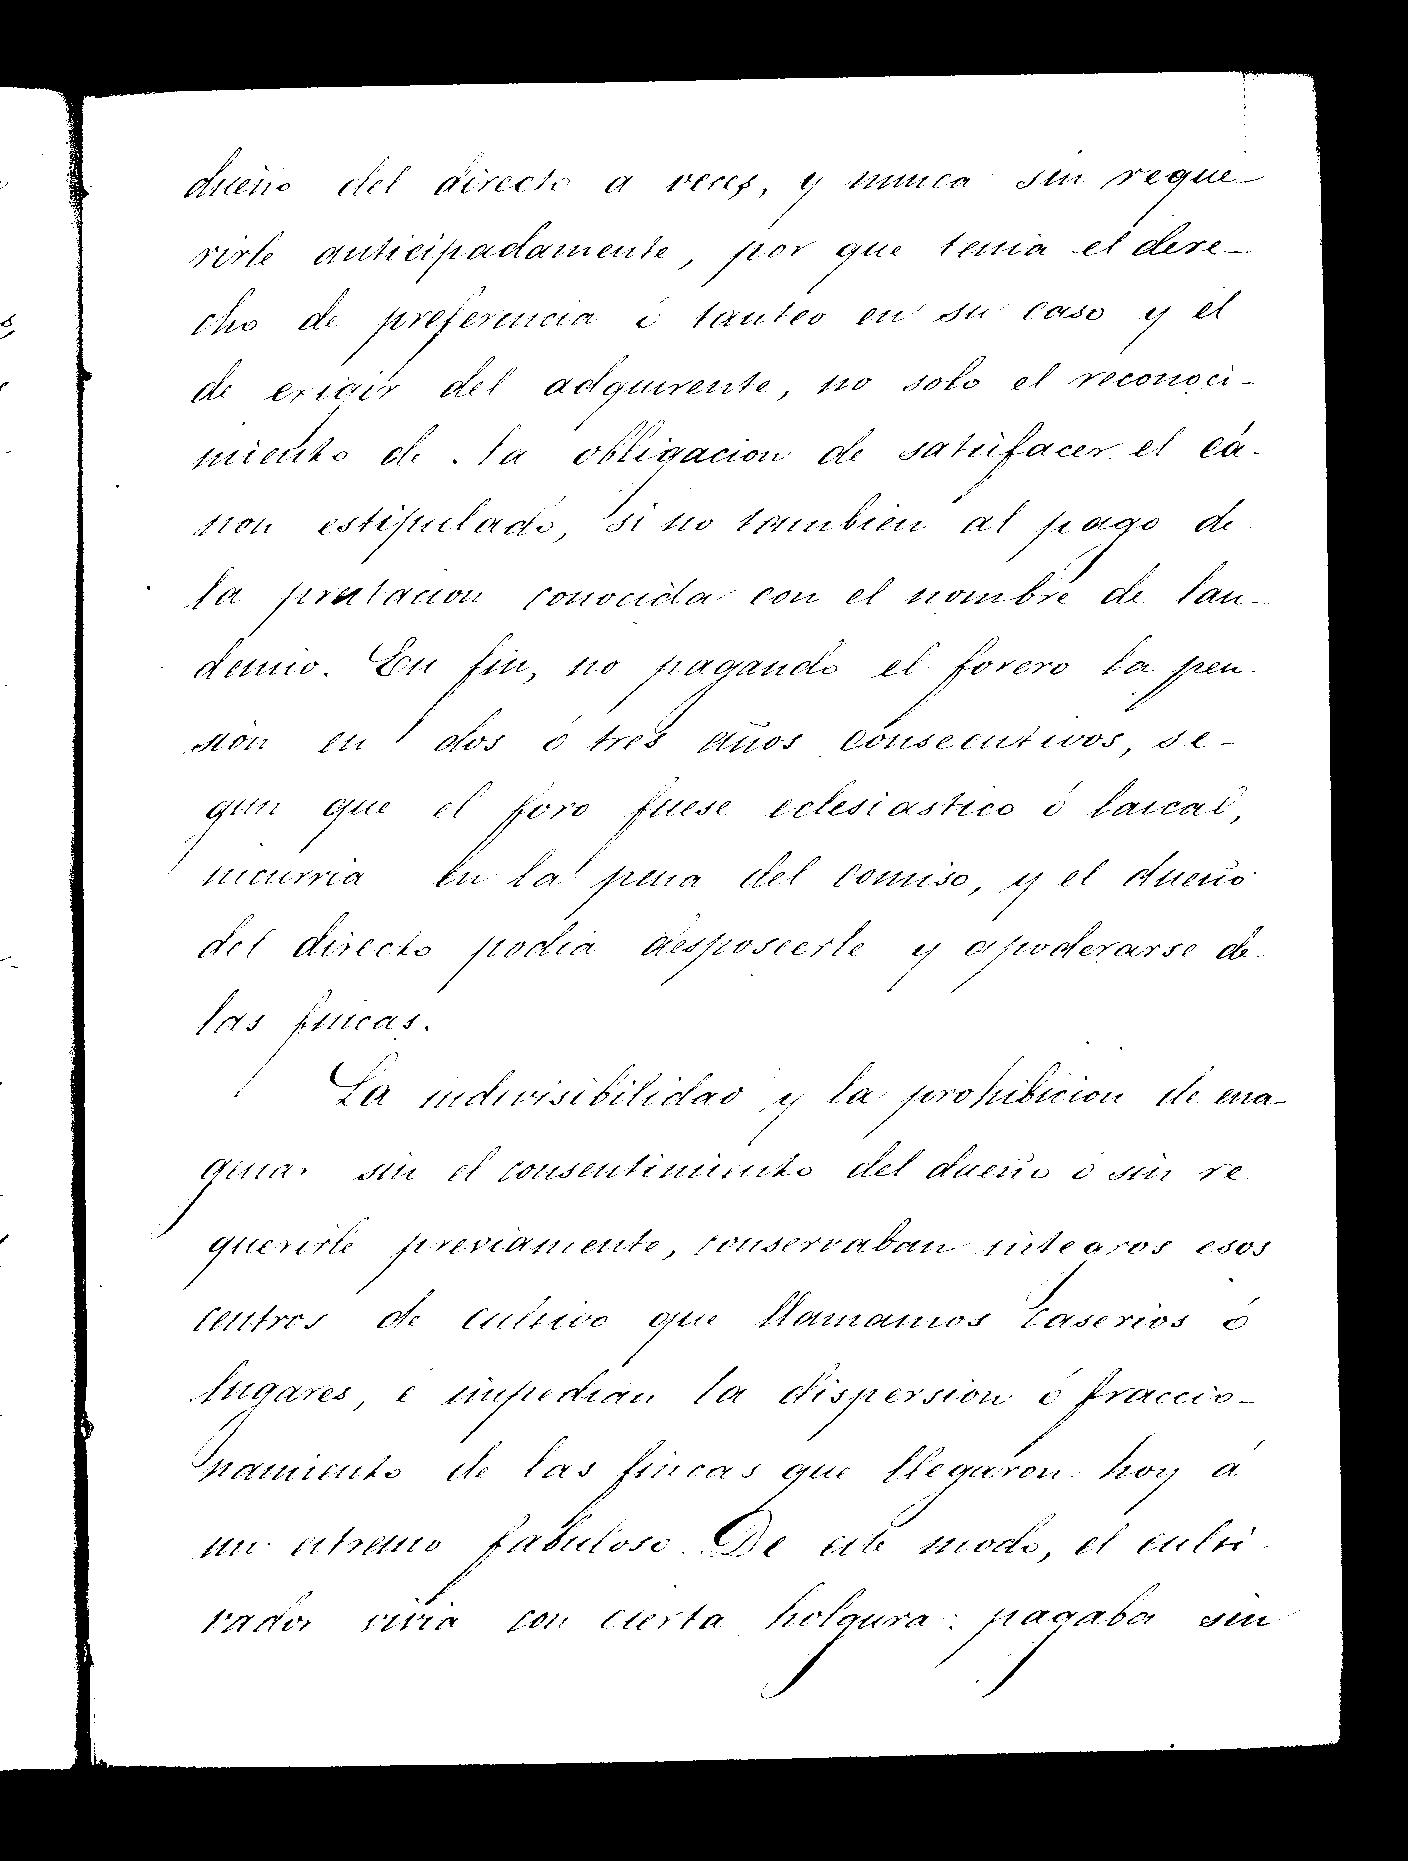 dueño del directo a veces, y nunca sin reque-
rirle anticipadamente, por que tenia el dere-
cho de preferencia ó tanteo en su caso y el
de exigir del adquirente, no solo el reconoci-
miento de la obligacion de satisfacer el cá-
non estipulado, si no tambien al pago de
la prestacion conocida con el nombre de lau-
demio. En fin, no pagando el forero la pen-
sión en dos ó tres años consecutivos, se-
gun que el foro fuese eclesiastico ó laical,
incurria en la pena del comiso, y el dueño
del directo podia desposeerle y apoderarse de
las fincas.
La indivisibilidad y la prohibicion de ena-
genar sin el consentimiento del dueño ó sin re
querirle previamente, conservaban integros esos
centros de cultivo que llamamos caserios ó
lugares, é impedian la dispersion ó fraccio-
namiento de las fincas que llegaron hoy á
un estremo fabuloso. De este modo, el culti-
vador vivia con cierta holgura: pagaba sin